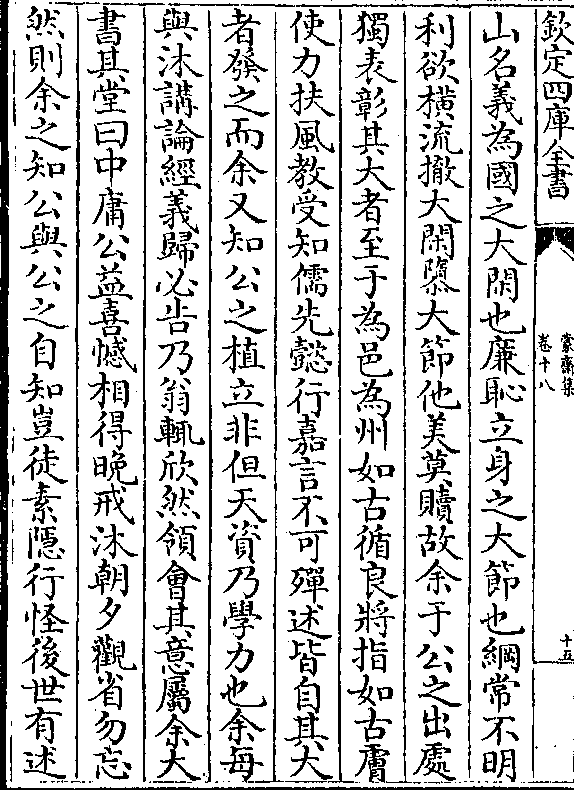 欽定四庫全書
蒙齋集
卷十八
十五
山名義為國之大閑也廉恥立身之大節也綱常不明
利欲橫流撤大閑隳大節他美莫贖故余于公之出處
獨表彰其大者至于為邑為州如古循良將指如古膚
使力扶風教受知儒先懿行嘉言不可殫述皆自其大
者發之而余又知公之植立非但天資乃學力也余每
與沐講論經義歸必告乃翁輒欣然領會其意屬余大
書其堂曰中庸公益喜憾相得晚戒沐朝夕觀省勿忘
然則余之知公與公之自知豈徒素隱行怪後世有述